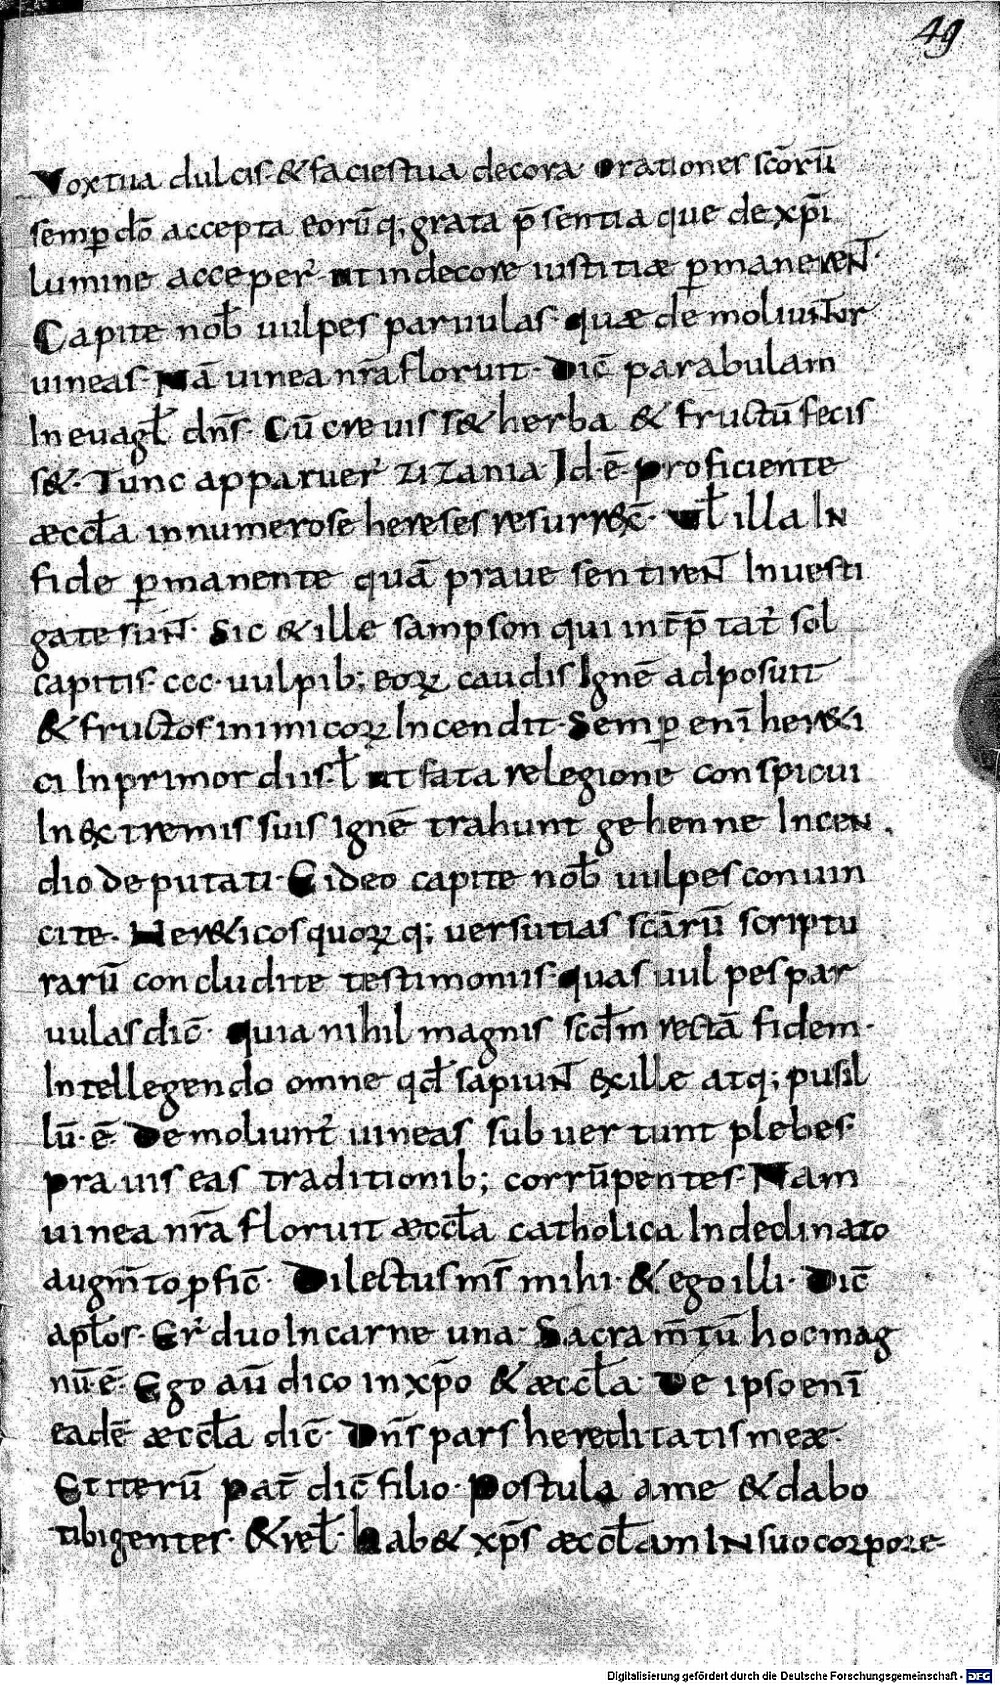 49
Vox tua dulcis· & facies tua decora· Orationes scōrū
semp̄ dō accepta eorūq; grata p̄sentia que de xp̄i
lumine acceper̄· ut in decore iustitiæ p̄maneren̄t·
Capite nob̄ uulpes paruulas· quæ demoliunt̄or
uineas· Nā uinea nr̄a floruit· Dic̄ parabulam
In euagl̄ dn̄s· Cū creuiss& herba & fructū fecis
s&· Tunc apparuer̄ zizania Id·ē· proficiente
æccl̄a innumerose hereses resurrex̄· Vl̄ illa In
fide p̄manente quā praue sentiren̄t Inuesti
gate sun̄t· Sic & ille sampson qui int̄p̄tat̄ sol
capitis· ccc· uulpib; eoꝝ caudis Ignē adposuit
& fructos inimicoꝝ Incendit· Semp̄ enī her&i
ci In primordiis· l̄ ut fata relegione conspicui
In extremis suis Ignē trahunt gehenne Incen
dio deputati· Et ideo capite nob̄ uulpes conuin
cite· Her&icos quoꝝq; uersutias scārū scriptu
rarū concludite testimoniis· quas uulpes par
uulas dic̄· quia nihil magnis scd̄m rectā fidem·
Intellegendo omne qd̄ sapiun̄t exille atq; pusil
lū·ē· Demoliunt̄ uineas subuertunt plebes·
prauis eas traditionib; corrūpentes· Nam
uinea nr̄a floruit æccl̄a catholica In declinato
augm̄to p̄fic̄· Dilectus m̄s mihi· & ego illi· Dic̄
apl̄os· Er̄ duo In carne una· Sacram̄tū hoc mag
nū·ē· Ego aū dico in xp̄o & æccl̄a· De ipso enī
eadē æccl̄a dic̄· Dn̄s pars hereditatis meæ·
Et iterū pat̄ dic̄ filio· Postula a me & dabo
tibi gentes· & rel̄· hab& xp̄s æccl̄am IN suo corpore·
Digitalisierung gefördert durch die Deutsche Forschungsgemeinschaft - DFG